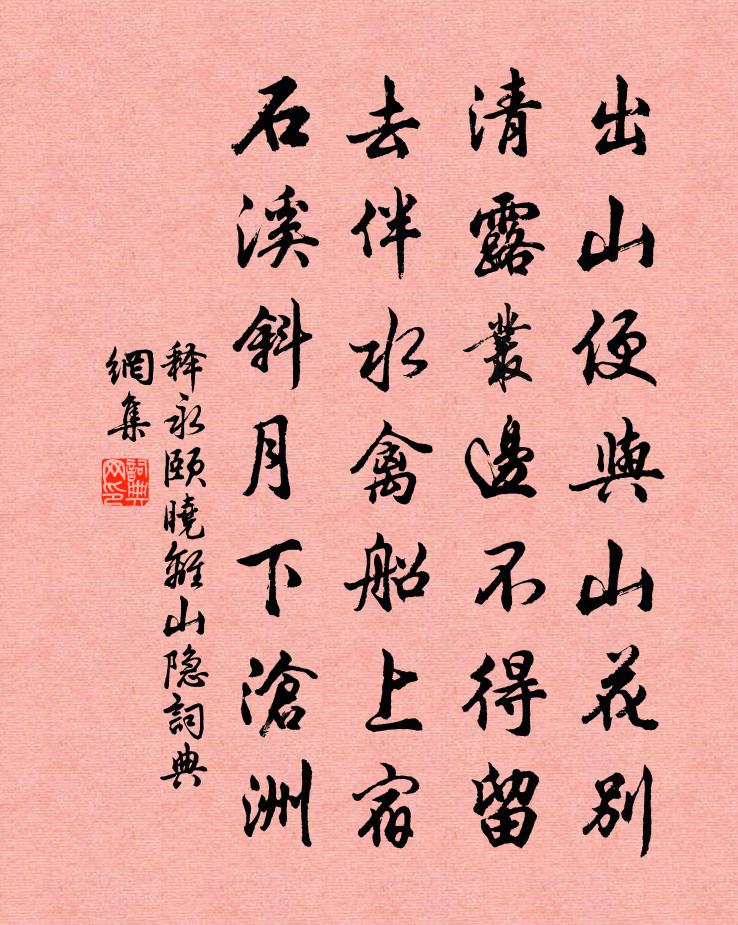 出山便與山花別
清露叢邊不得留
去伴水禽船上宿
石溪斜月下滄洲
释永颐曉離山隐詞典
網集
詞典網印